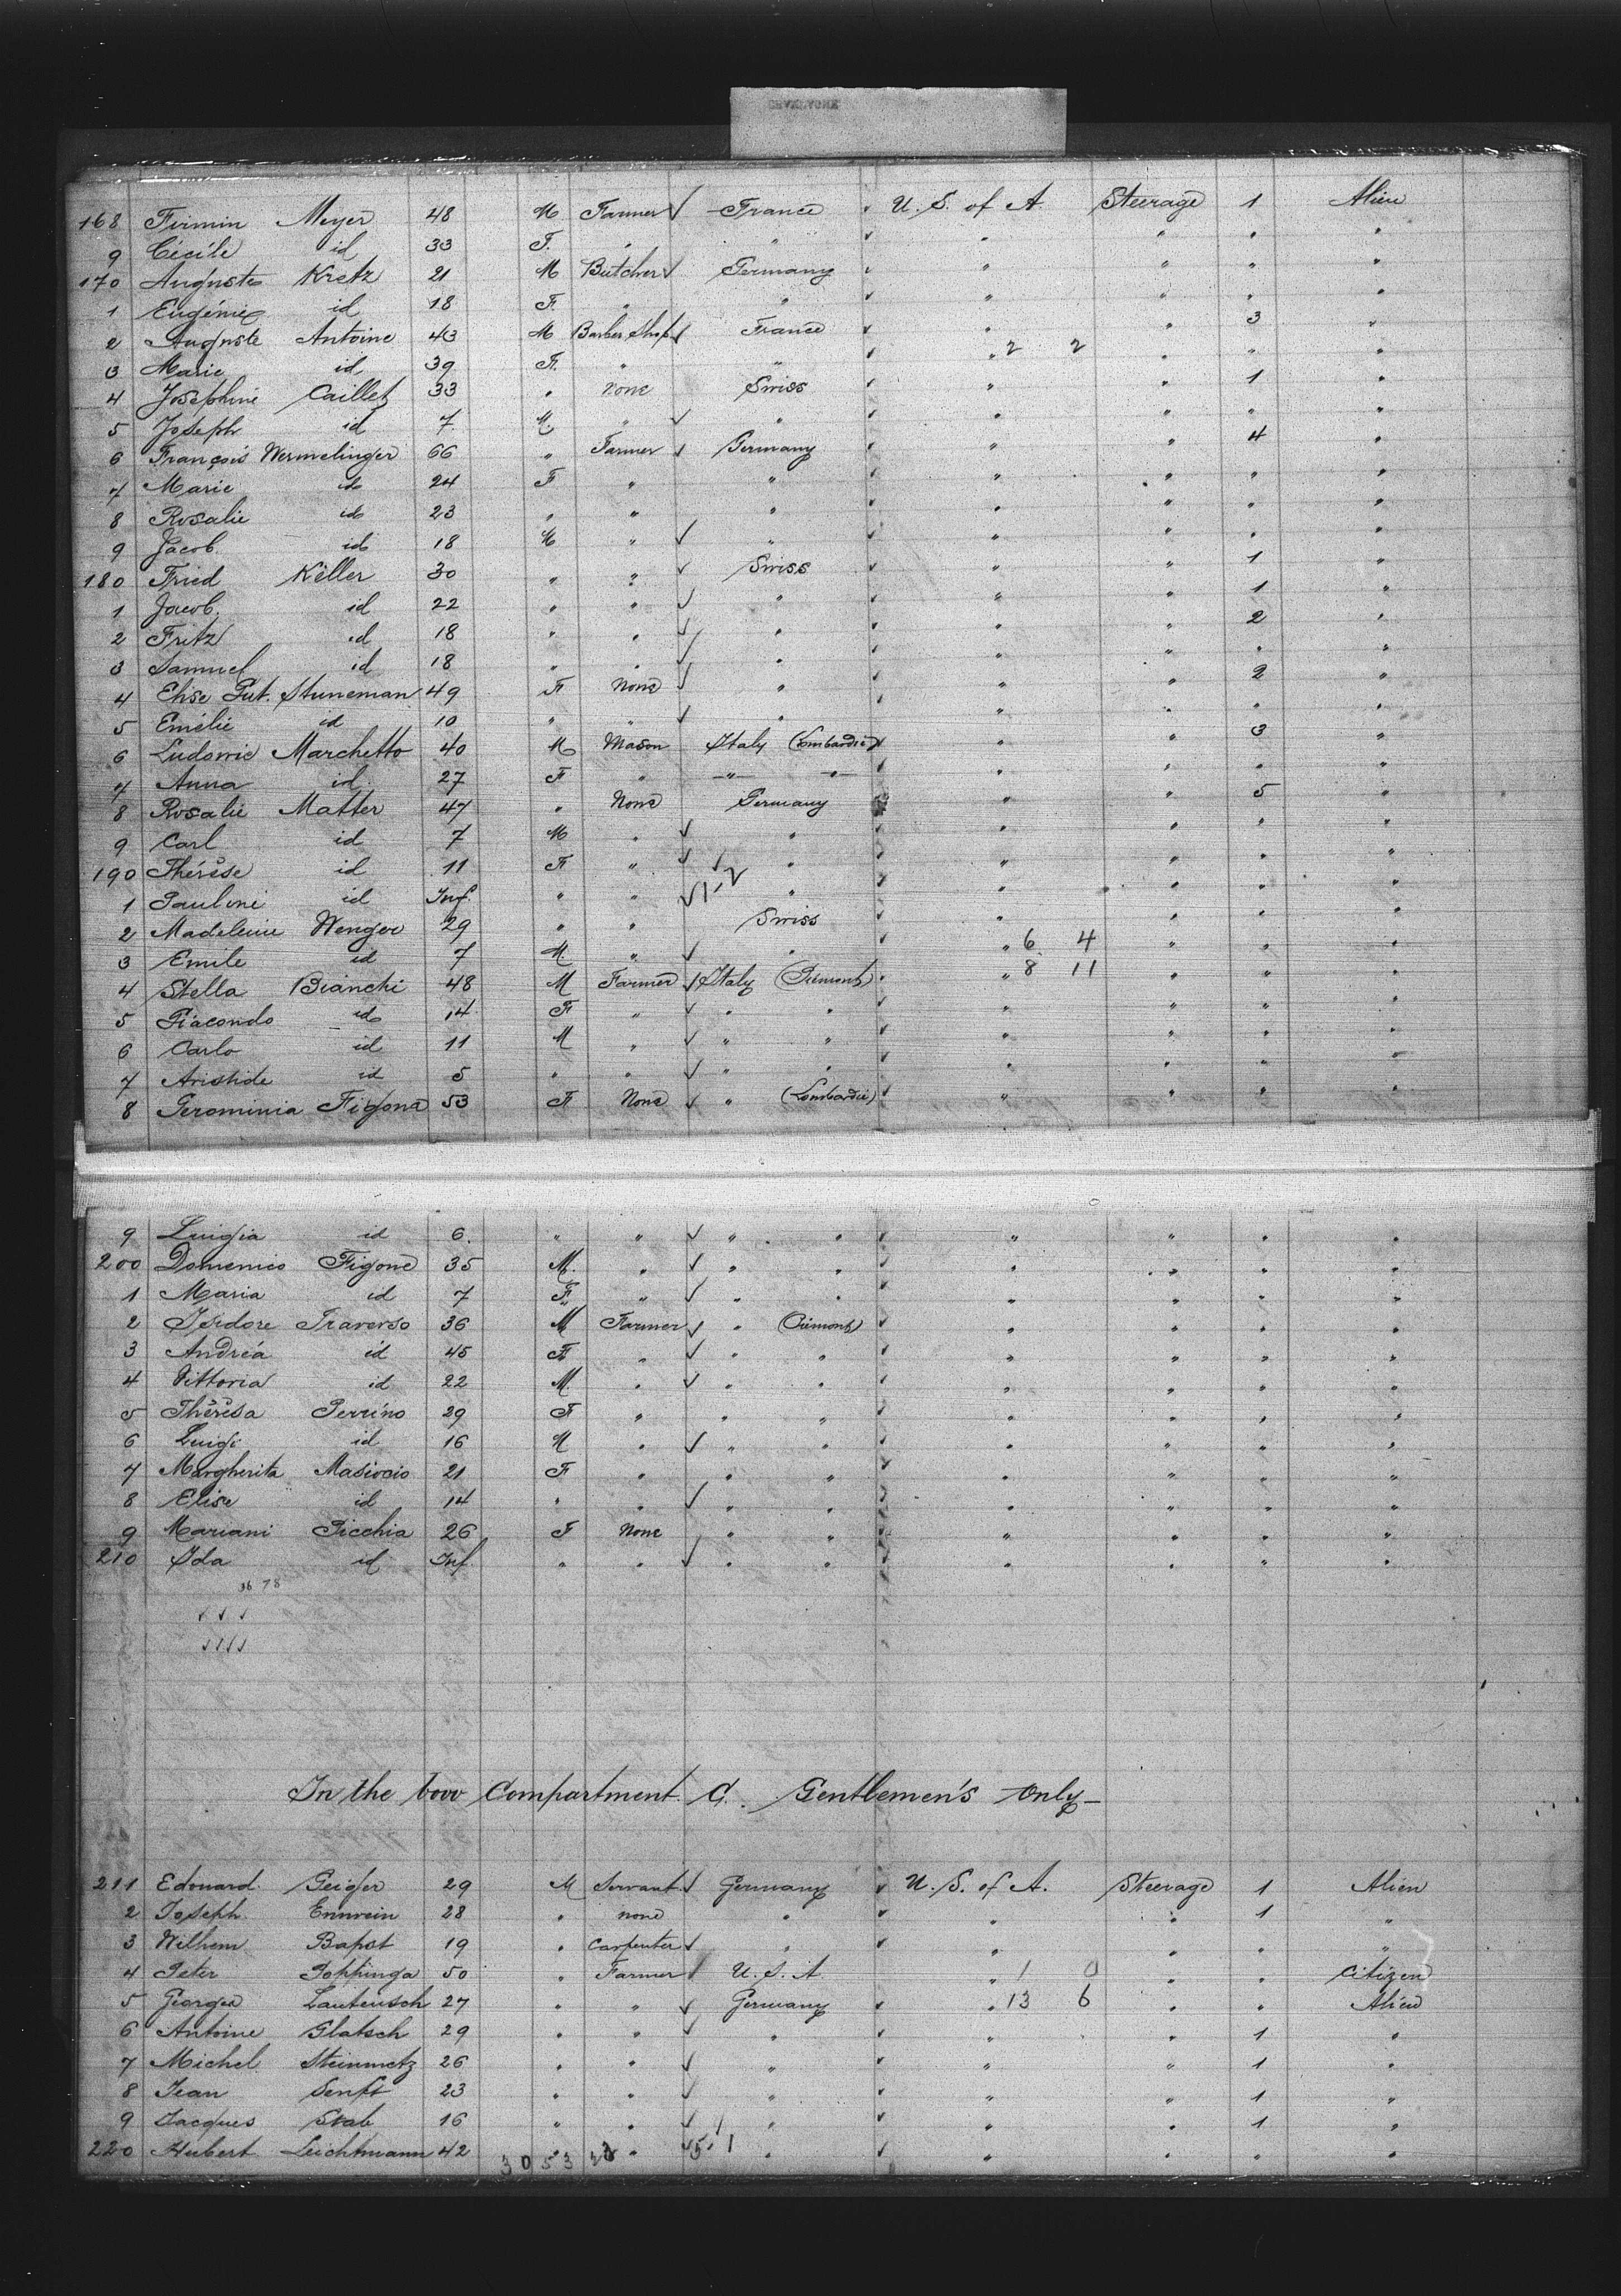 168 Firmin Meyer 48 M Farmer ✓ France ✓ U. S. of A. Steerage 1 Alien
9 Cécile id 33 F. " " ✓ " " " "
170 Auguste Kretz 21 M Butcher ✓ Germany ✓ " " " "
1 Eugénie id 18 F. " " ✓ " " " "
2 Auguste Antoine 43 M Barber Shop ✓ France ✓ " " 3 "
3 Marie id 39 F. " " ✓ " 2 2 " " "
4 Joséphine Caillet 33 " none Swiss ✓ " " 1 "
5 Joseph id 7 M. " ✓ " ✓ " " " "
6 François Wermelinger 66 " Farmer ✓ Germany ✓ " " 4 "
7 Marie id 24 F " " ✓ " " " "
8 Rosalie id 23 " " " ✓ " " " "
9 Jacob id 18 M " ✓ " ✓ " " " "
180 Fried Keller 30 " " ✓ Swiss ✓ " " 1 "
1 Jacob. id 22 " " ✓ " ✓ " " 1 "
2 Fritz id 18 " " ✓ " ✓ " " 2 "
3 Samuel id 18 " " ✓ " ✓ " " " "
4 Elise Gut. Stuneman 49 F None ✓ " ✓ " " 2 "
5 Emélie id 10 " " ✓ " ✓ " " " "
6 Ludovic Marchetto 40 M Mason Italy (Lombardie) ✓ " " 3 "
7 Anna id 27 F " " " ✓ " " " "
8 Rosalie Matter 47 " None Germany " " 5 "
9 Carl id 7 M " ✓ " ✓ " " " "
190 Thérèse id 11 F " ✓ " ✓ " " " "
1 Pauline id Inf. " " ✓ 1-2 " ✓ " " " "
2 Madeleine Wenger 29 " " Swiss ✓ " " " "
3 Emile id 7 M. " ✓ " ✓ " 6 4 " " "
4 Stella Bianchi 48 M Farmer ✓ Italy (Piémont) ✓ " 8 11 " " "
5 Giacondo id 14 F " ✓ " " ✓ " " " "
6 Carlo id 11 M " ✓ " " ✓ " " " "
7 Aristide id 5 " " ✓ " " ✓ " " " "
8 Gerominia Figone 53 F None ✓ " (Lombardie) ✓ " " " "
9 Luigia id 6. " " ✓ " " ✓ " " " "
200 Domenico Figone 35 M. " ✓ " " ✓ " " " "
1 Maria id 7 F " ✓ " " ✓ " " " "
2 Isidore Traverso 36 M Farmer ✓ " (Piémont) ✓ " " " "
3 Andréa id 45 F " ✓ " " ✓ " " " "
4 Vittoria id 22 M. " ✓ " " ✓ " " " "
5 Thérèsa Perrino 29 F " " " ✓ " " " "
6 Luigi id 16 M " ✓ " " ✓ " " " "
7 Margherita 21 F " " " ✓ " " " "
8 Elise id 14 " " ✓ " " ✓ " " " "
9 Mariani Picchia 26 F None " " ✓ " " " "
210 Ida id Inf " " ✓ " " ✓ " " " "
36 78
✓ ✓ ✓
✓ ✓ ✓ ✓
In the bow Compartment. C. Gentlemen's only-
211 Edouard Geiger 29 M Servant ✓ Germany ✓ U. S. of A. Steerage 1 Alien
2 Joseph Ennwein 28 " none " ✓ " " 1 "
3 Wilhem Bapst 19 " Carpenter ✓ " ✓ " " " "
4 Peter Poppinga 50 " Farmer ✓ U. S. A " 1 0 " " Citizen
5 Georges Lautensch 27 " " ✓ Germany ✓ " 13 6 " " Alien
6 Antoine Glatsch 29 " " ✓ " ✓ " " 1 "
7 Michel Steinmetz 26 " " ✓ " ✓ " " 1 "
8 Jean Senft 23 " " ✓ " ✓ " " 1 "
9 Jacques Stab 16 " " ✓ " ✓ " " 1 "
220 Hubert Leichtmann 42 " " 5-1 " ✓ " " " "
3053